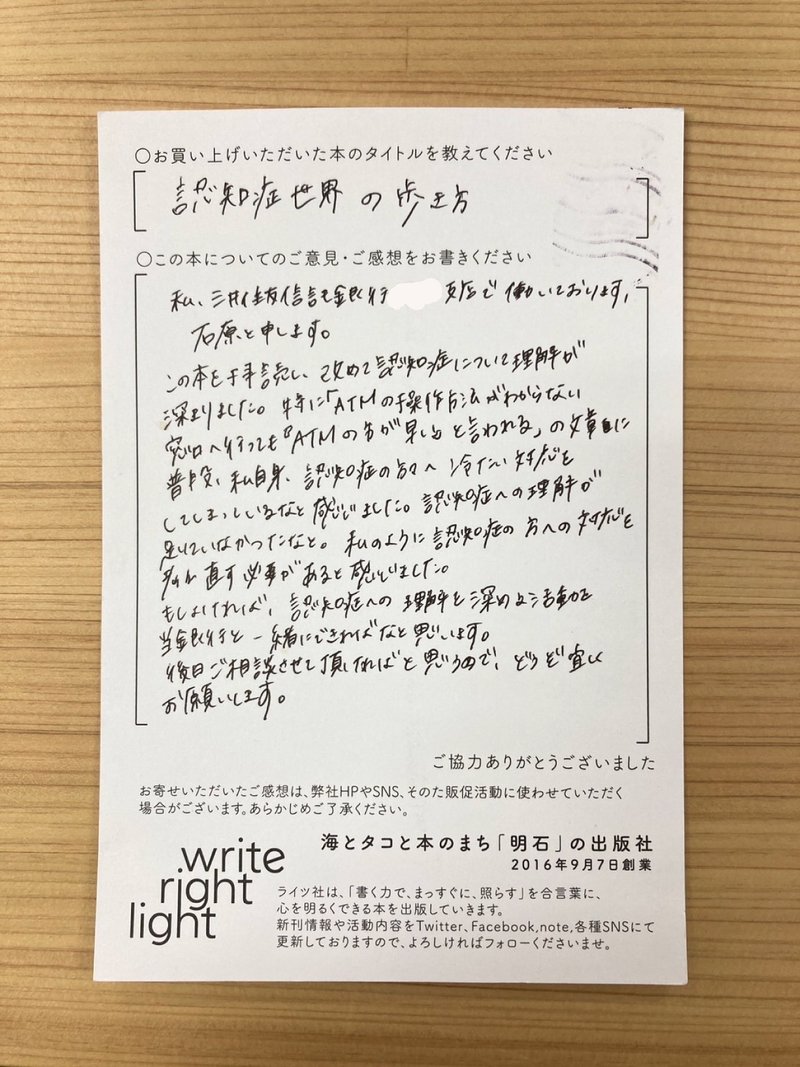 ○お買い上げいただいた本のタイトルを教えてください
認知症世界の歩き方
○この本についてのご意見・ご感想をお書きください
私、三井住友信託銀行 支店で働いております、
石原と申します。
この本を拝読し、改めて認知症について理解が
深まりました。特に「ATMの操作方法がわからない
窓口へ行っても『ATMの方が早い』と言われる」の文章に
普段、私自身、認知症の方々へ冷たい対応を
してしまっているなと感じました。認知症への理解が
足りていなかったなと。私のように認知症の方への対応を
直す必要があると感じました。
もしよければ、認知症への理解を深める活動を
当銀行と一緒にできればなと思います。
後日ご相談させて頂ければと思うので、どうぞ宜しく
お願いします。
ご協力ありがとうございました
お寄せいただいたご感想は、弊社HPやSNS、そのた販促活動に使わせていただく
場合がございます。あらかじめご了承ください。
write
right
light
海とタコと本のまち「明石」の出版社
2016年9月7日創業
ライツ社は、「書く力で、まっすぐに、照らす」を合言葉に、
心を明るくできる本を出版していきます。
新刊情報や活動内容をTwitter、Facebook,note,各種SNSにて
更新しておりますので、よろしければフォローくださいませ。